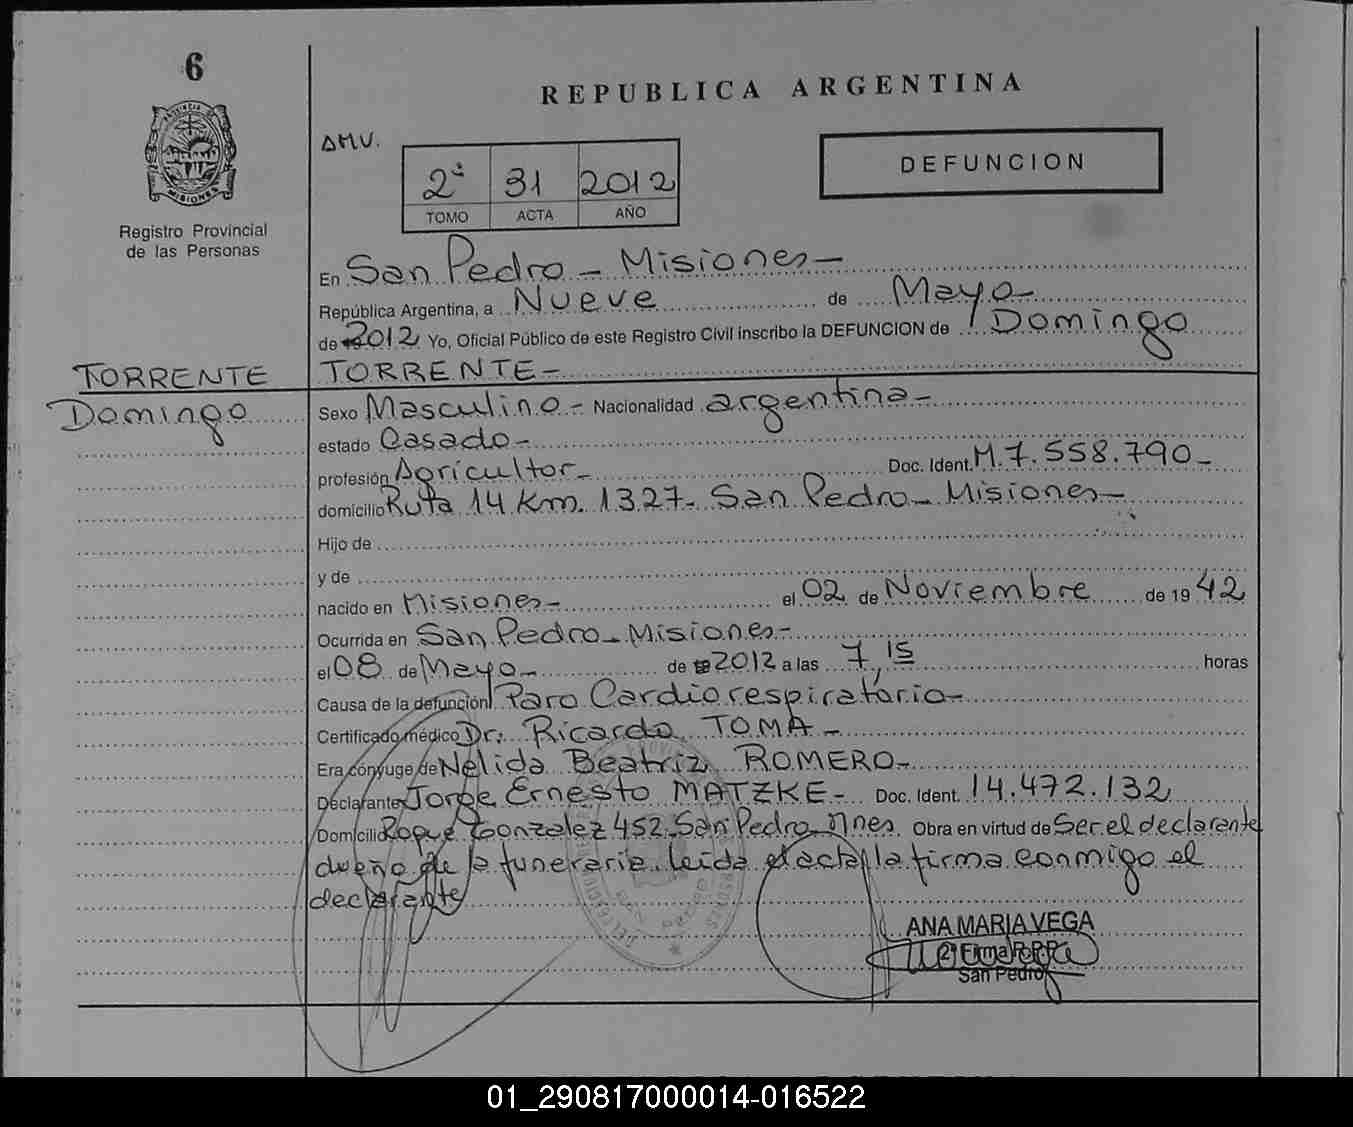 6
REPUBLICA ARGENTINA
PROVINCIA DE
MISIONES
Registro Provincial
de las Personas
AMV.
2ª 31 2012
TOMO ACTA AÑO
DEFUNCION
En San Pedro - Misiones -
República Argentina, a Nueve de Mayo -
de 2012 Yo, Oficial Público de este Registro Civil inscribo la DEFUNCION de Domingo
TORRENTE TORRENTE -
Domingo Sexo Masculino - Nacionalidad argentina -
estado Casado -
profesión Agricultor - Doc. Ident. M. 7.558.790 -
domicilio Ruta 14 Km. 1327 - San Pedro - Misiones -
Hijo de
y de
nacido en Misiones - el 02 de Noviembre de 1942
Ocurrida en San Pedro - Misiones -
el 08 de Mayo - de 2012 a las 7,15 horas
Causa de la defunción Paro Cardiorespiratorio -
Certificado médico Dr. Ricardo TOMA -
Era cónyuge de Nélida Beatriz ROMERO -
Declarante Jorge Ernesto MATZKE - Doc. Ident. 14.472.132
Domicilio Roque Gonzalez 452. San Pedro - Mnes. Obra en virtud de Ser el declarante
dueño de la funeraria. leída el acta la firma conmigo el
declarante
ANA MARIA VEGA
2ª Firma R.P.P.
San Pedro
01_290817000014-016522